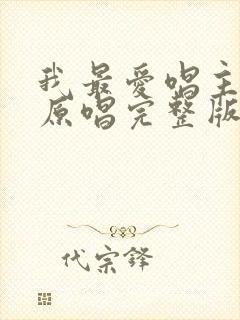 我最爱唱主
原唱完整版
代宗锋